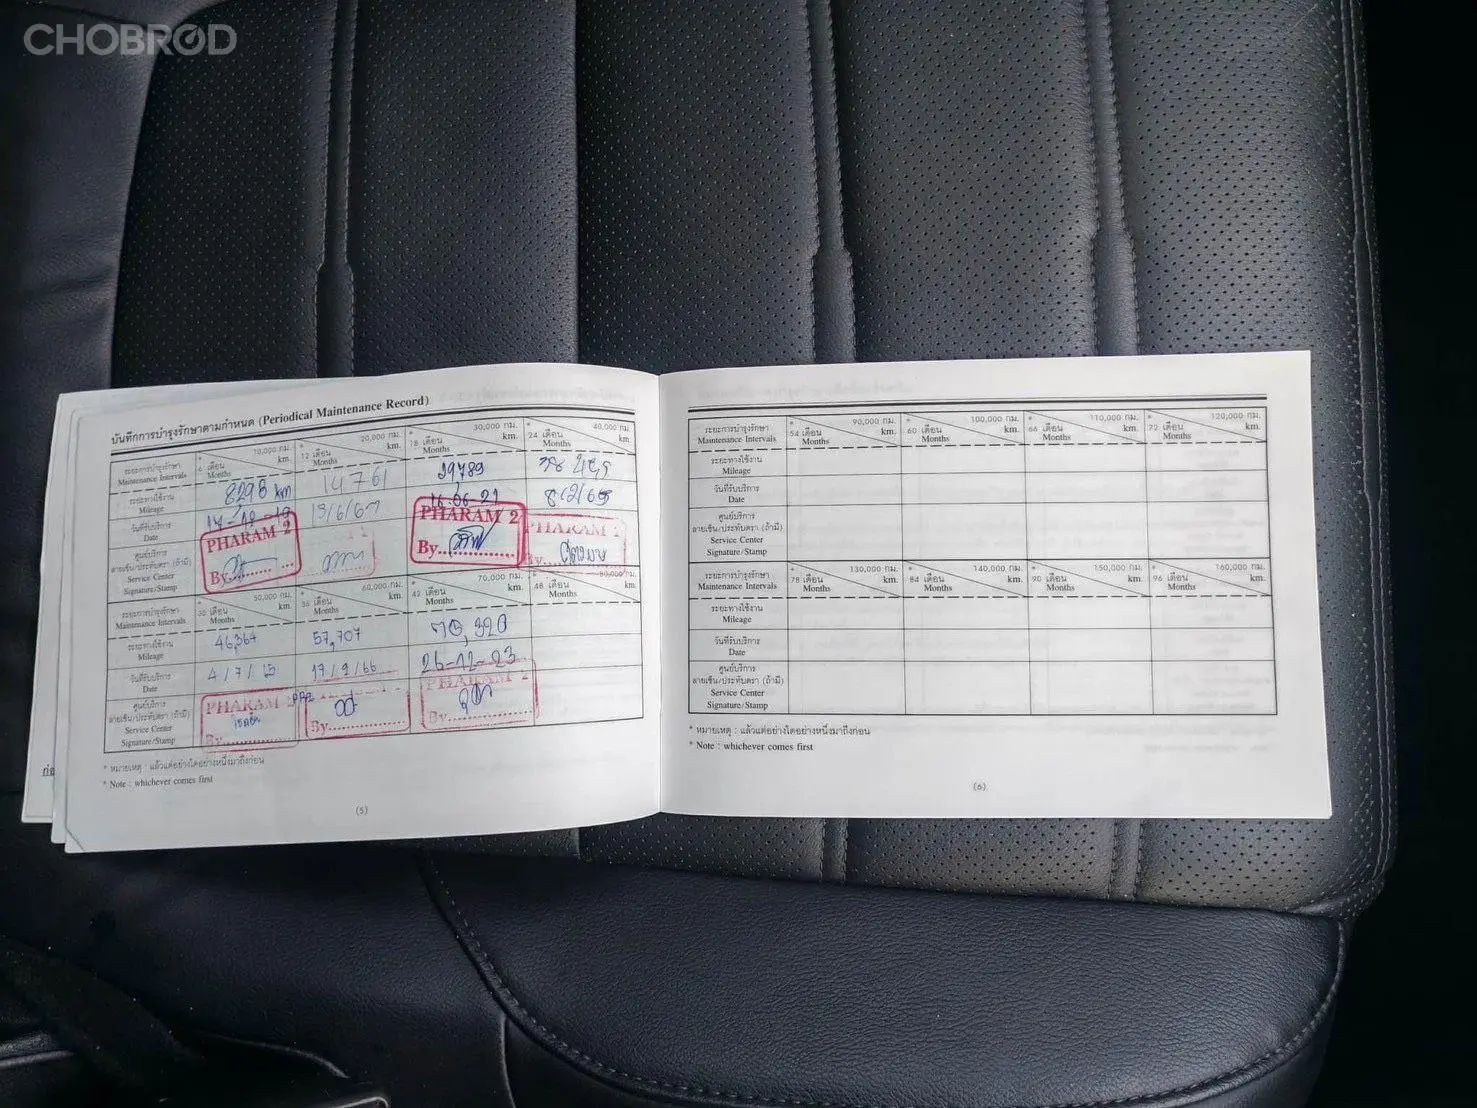 CHOBROD
บันทึกการบำรุงรักษาตามกำหนด (Periodical Maintenance Record)
ระยะการบำรุงรักษา Maintenance Intervals
* 6 เดือน Months 10,000 กม. km.
* 12 เดือน Months 20,000 กม. km.
* 18 เดือน Months 30,000 กม. km.
* 24 เดือน Months 40,000 กม. km.
ระยะทางใช้งาน Mileage 8298 km 14761 29,789
วันที่รับบริการ Date 17-12-19 13/6/67 16.06.21
ศูนย์บริการ
ลายเซ็น/ประทับตรา (ถ้ามี)
Service Center
Signature/Stamp
PHARAM 2 By
PHARAM 2 By
PHARAM 2 By
ระยะการบำรุงรักษา Maintenance Intervals
50,000 กม. km. เดือน Months
* 36 เดือน Months 60,000 กม. km.
* 42 เดือน Months 70,000 กม. km.
* 48 เดือน Months 80,000 กม. km.
ระยะทางใช้งาน Mileage 46,364 57,707 70,320
วันที่รับบริการ Date 4/7/65 17/9/66 26-12-23
ศูนย์บริการ
ลายเซ็น/ประทับตรา (ถ้ามี)
Service Center
Signature/Stamp
PHARAM 2 By
By
PHARAM 2
* หมายเหตุ : แล้วแต่อย่างใดอย่างหนึ่งมาถึงก่อน
* Note : whichever comes first
(5)
ระยะการบำรุงรักษา Maintenance Intervals
* 54 เดือน Months 90,000 กม. km.
* 60 เดือน Months 100,000 กม. km.
* 66 เดือน Months 110,000 กม. km.
* 72 เดือน Months 120,000 กม. km.
ระยะทางใช้งาน
Mileage
วันที่รับบริการ
Date
ศูนย์บริการ
ลายเซ็น/ประทับตรา (ถ้ามี)
Service Center
Signature/Stamp
ระยะการบำรุงรักษา Maintenance Intervals
* 78 เดือน Months 130,000 กม. km.
* 84 เดือน Months 140,000 กม. km.
* 90 เดือน Months 150,000 กม. km.
* 96 เดือน Months 160,000 กม. km.
ระยะทางใช้งาน
Mileage
วันที่รับบริการ
Date
ศูนย์บริการ
ลายเซ็น/ประทับตรา (ถ้ามี)
Service Center
Signature/Stamp
* หมายเหตุ : แล้วแต่อย่างใดอย่างหนึ่งมาถึงก่อน
* Note : whichever comes first
(6)